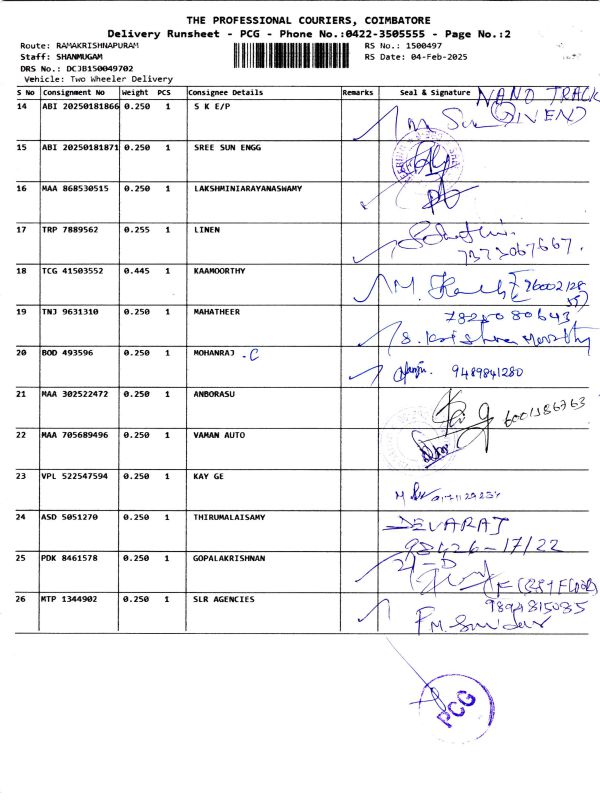 THE PROFESSIONAL COURIERS, COIMBATORE
Delivery Runsheet - PCG - Phone No.:0422-3505555 - Page No.:2
Route: RAMAKRISHNAPURAM RS No.: 1500497
Staff: SHANMUGAM RS Date: 04-Feb-2025
DRS No.: DCJB150049702
Vehicle: Two Wheeler Delivery
S No Consignment No Weight PCS Consignee Details Remarks Seal & Signature
NANO TRACK
14 ABI 20250181866 0.250 1 S K E/P
15 ABI 20250181871 0.250 1 SREE SUN ENGG
16 MAA 868530515 0.250 1 LAKSHMINIARAYANASWAMY
17 TRP 7889562 0.255 1 LINEN
7373067667.
18 TCG 41503552 0.445 1 KAAMOORTHY
19 TNJ 9631310 0.250 1 MAHATHEER
S. Krishna Moorthy
20 BOD 493596 0.250 1 MOHANRAJ - C
9489841280
21 MAA 302522472 0.250 1 ANBORASU
22 MAA 705689496 0.250 1 VAMAN AUTO
23 VPL 522547594 0.250 1 KAY GE
24 ASD 5051270 0.250 1 THIRUMALAISAMY DEVARAJ
98426-17122
25 PDK 8461578 0.250 1 GOPALAKRISHNAN
26 MTP 1344902 0.250 1 SLR AGENCIES 9894815085
PCG